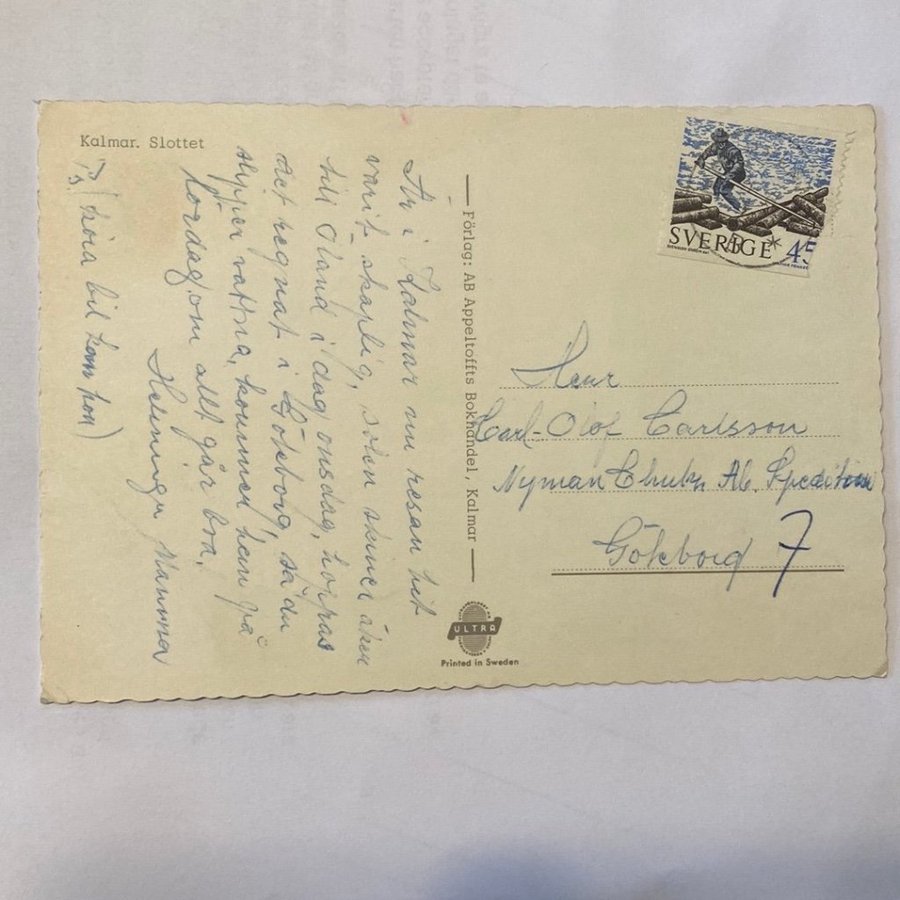 Kalmar. Slottet
Är i Kalmar nu resan het
varit skaplig, solen skiner åker
till Öland i dag onsdag, hoppas
det regnat i Göteborg, så du
slipper vattna, kommer hem på
lördag om allt går bra.
Helninga Mamma
Ps (köra bil kan hon)
Förlag: AB Appeltoffts Bokhandel, Kalmar
ULTRA
Printed in Sweden
SVERIGE 45
Herr
Carl-Olof Carlsson
Nyman Ab. Spedition
Göteborg 7